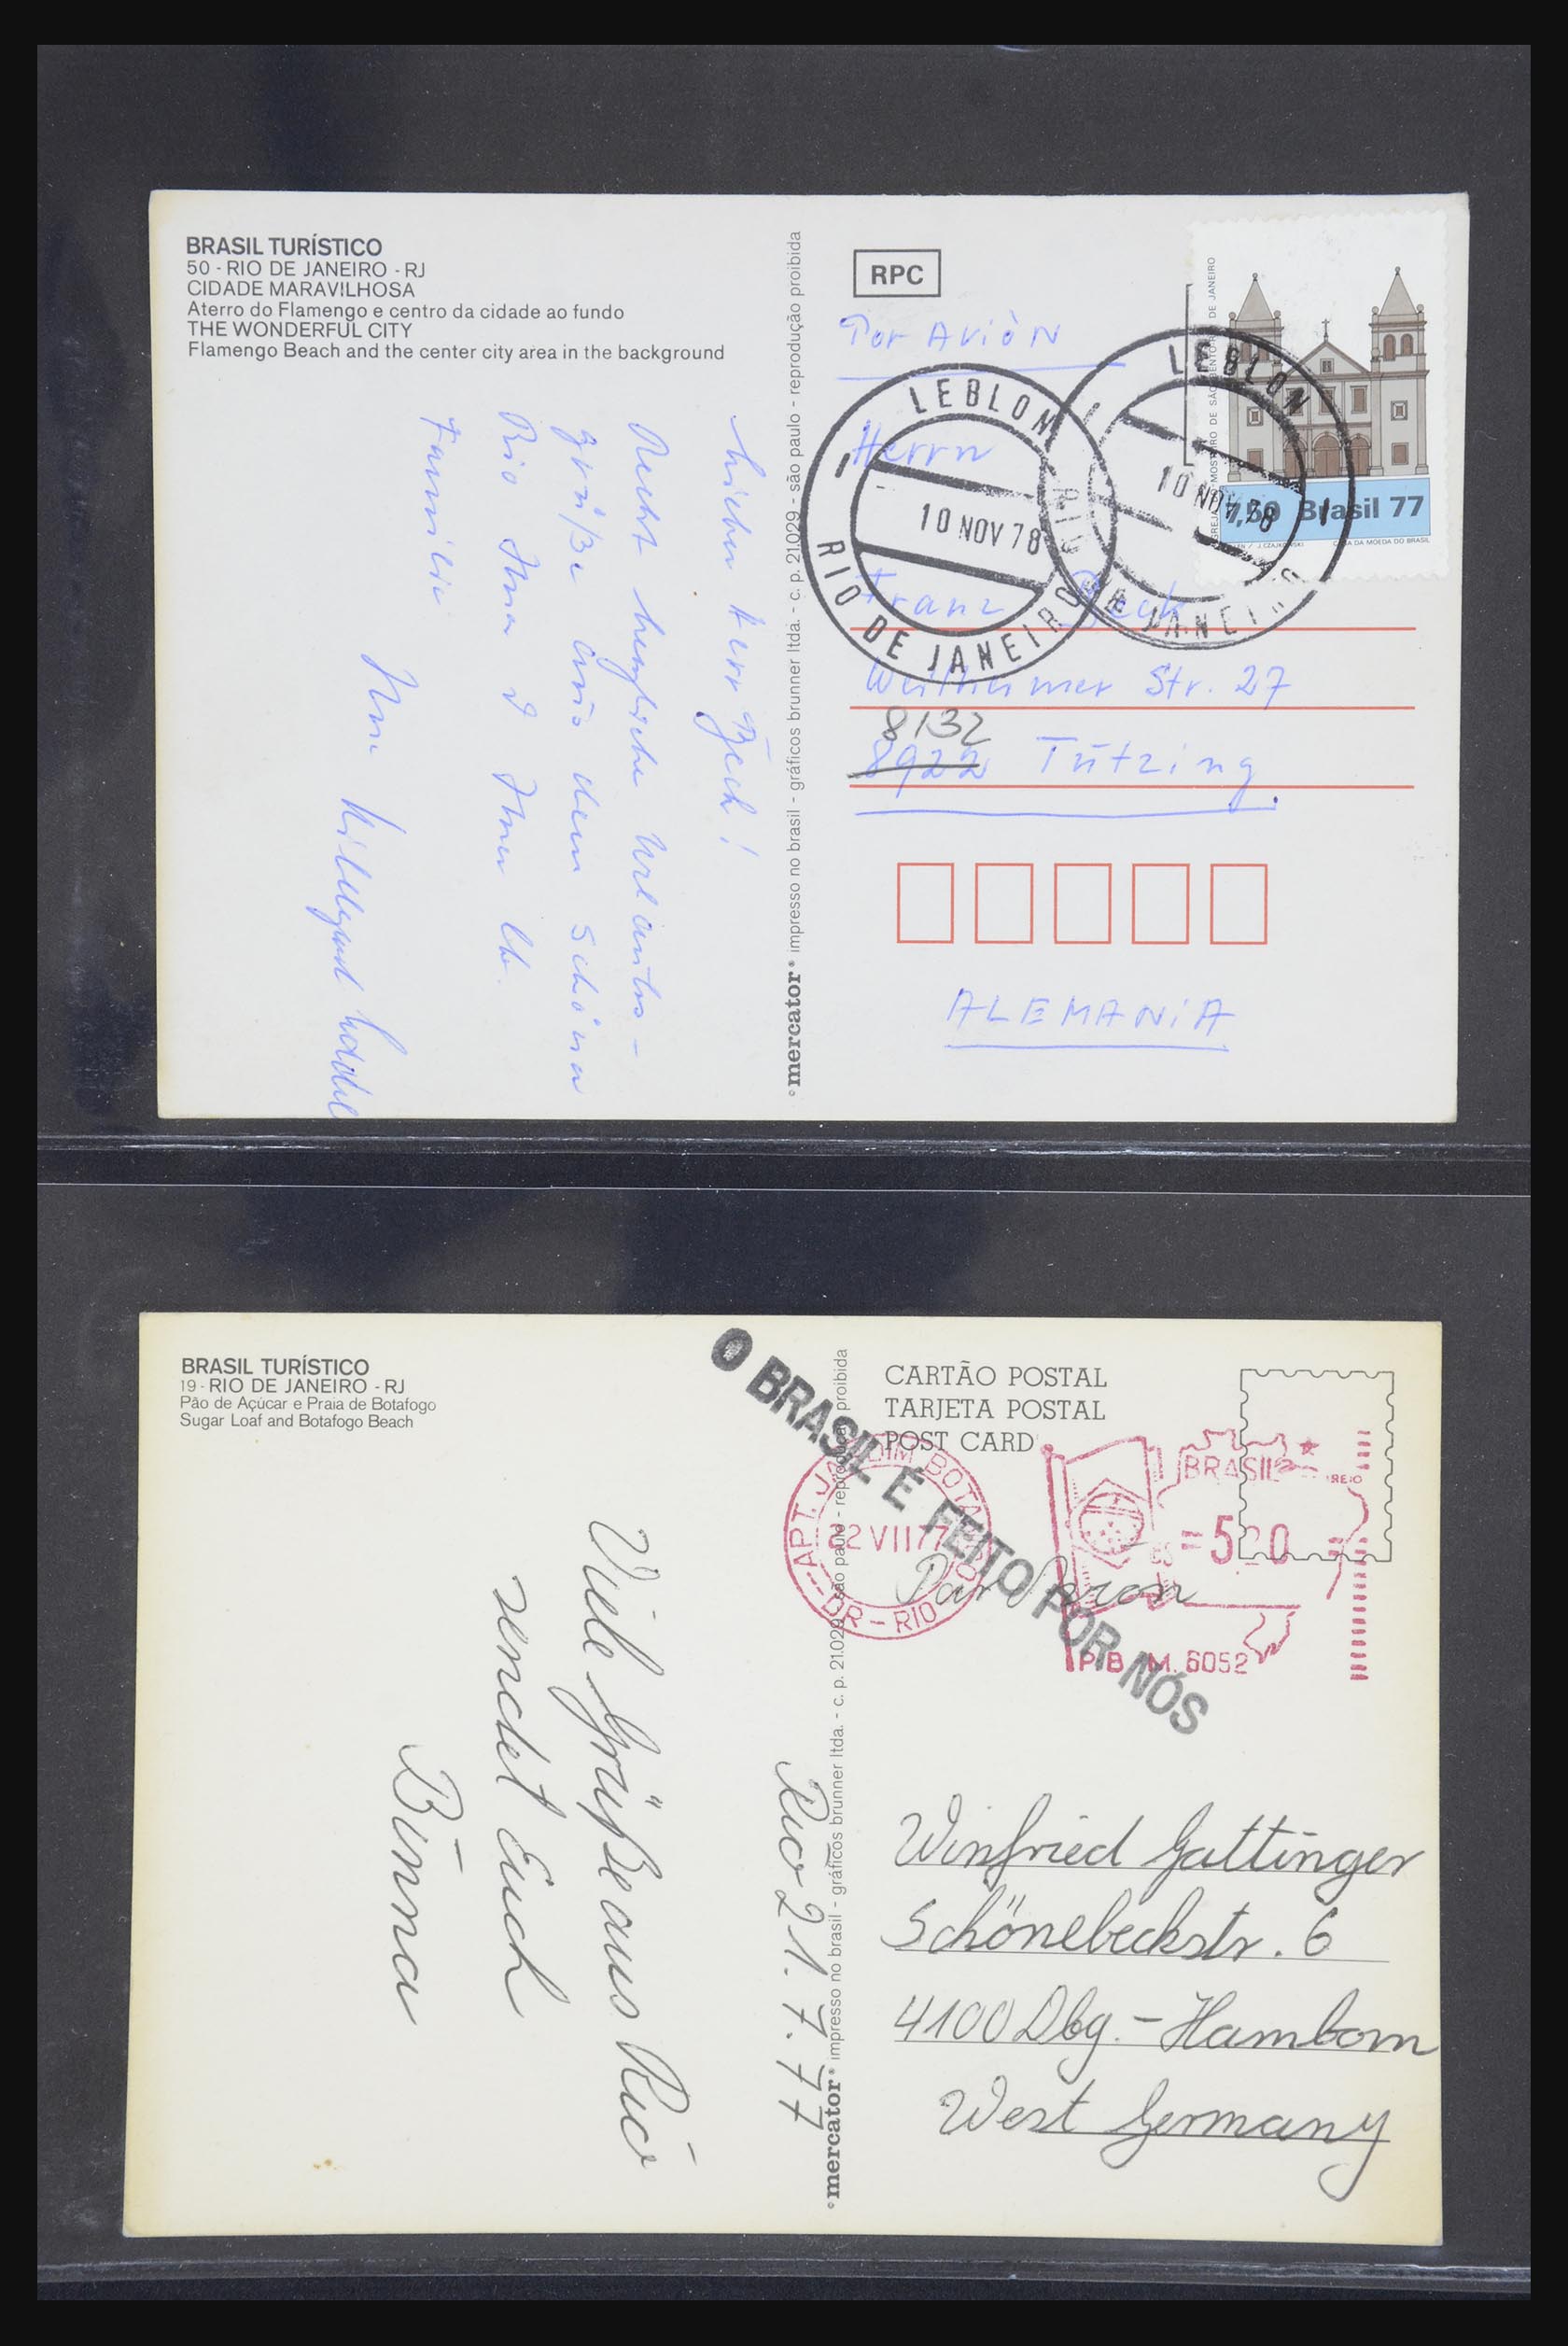 BRASIL TURÍSTICO
50 - RIO DE JANEIRO - RJ
CIDADE MARAVILHOSA
Aterro do Flamengo e centro da cidade ao fundo
THE WONDERFUL CITY
Flamengo Beach and the center city area in the background
Herr Bech!
Recht herzliche Urlaubs-
grüße aus dem schönen
Rio Ihnen
Familie
Ihre
mercator impresso no brasil - gráficos brunner ltda. - c. p. 21029 - são paulo - reprodução proibida
RPC
Por Aviòn
LEBLON
10 NOV 78
RIO DE JANEIRO
LEBLON
10 NOV 78
RIO DE JANEIRO
7,50 Brasil 77
CASA DA MOEDA DO BRASIL
Herrn
Franz Bech
Weilheimer Str. 27
8132
8922 Tutzing
ALEMANiA
BRASIL TURÍSTICO
19 - RIO DE JANEIRO - RJ
Pão de Açúcar e Praia de Botafogo
Sugar Loaf and Botafogo Beach
Rio 21.7.77
Viele Grüße aus Rio
sendet Euch
mercator impresso no brasil - gráficos brunner ltda. - c. p. 21.029 - são paulo - reprodução proibida
CARTÃO POSTAL
TARJETA POSTAL
POST CARD
O BRASIL É FEITO POR NÓS
22 VII 77
DR - RIO
BRASIL
P.B. M. 6052
Winfried Gattinger
Schönebeckstr. 6
4100 Dbg. - Hamborn
West Germany